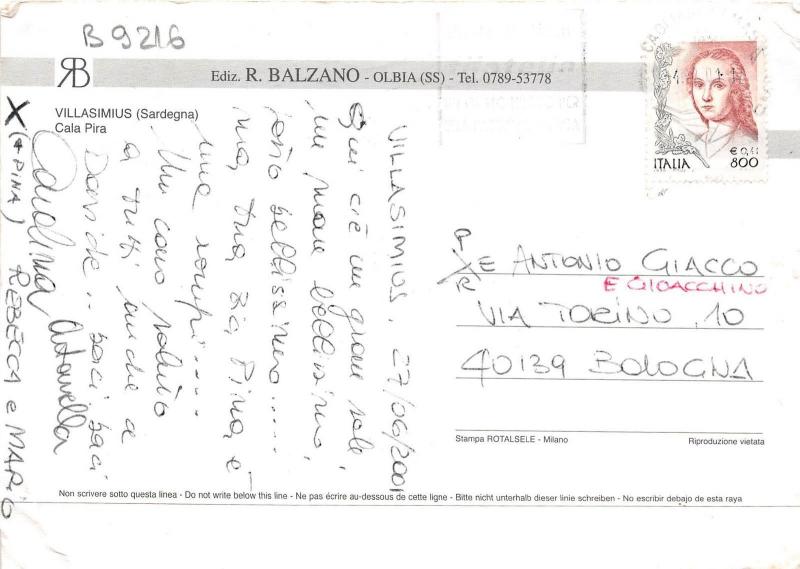 B 9216
RB
Ediz. R. BALZANO - OLBIA (SS) - Tel. 0789-53778
VILLASIMIUS (Sardegna)
Cala Pira
VILLASIMIUS, 27/06/2001
Qui c'è un gran sole,
un mare bellissimo,
bellissimo......
ma, tua zia, Pina, è
una rompi.....
Un caro saluto
a tutti anche a
Davide.. baci baci
Carolina Antonella
X (+ PINA) REBECCA e MARIO
€ 0,41
ITALIA 800
P/R E ANTONIO GIACCO
E GIOACCHINO
VIA TORINO, 10
40139 BOLOGNA
Stampa ROTALSELE - Milano
Riproduzione vietata
Non scrivere sotto questa linea - Do not write below this line - Ne pas écrire au-dessous de cette ligne - Bitte nicht unterhalb dieser linie schreiben - No escribir debajo de esta raya